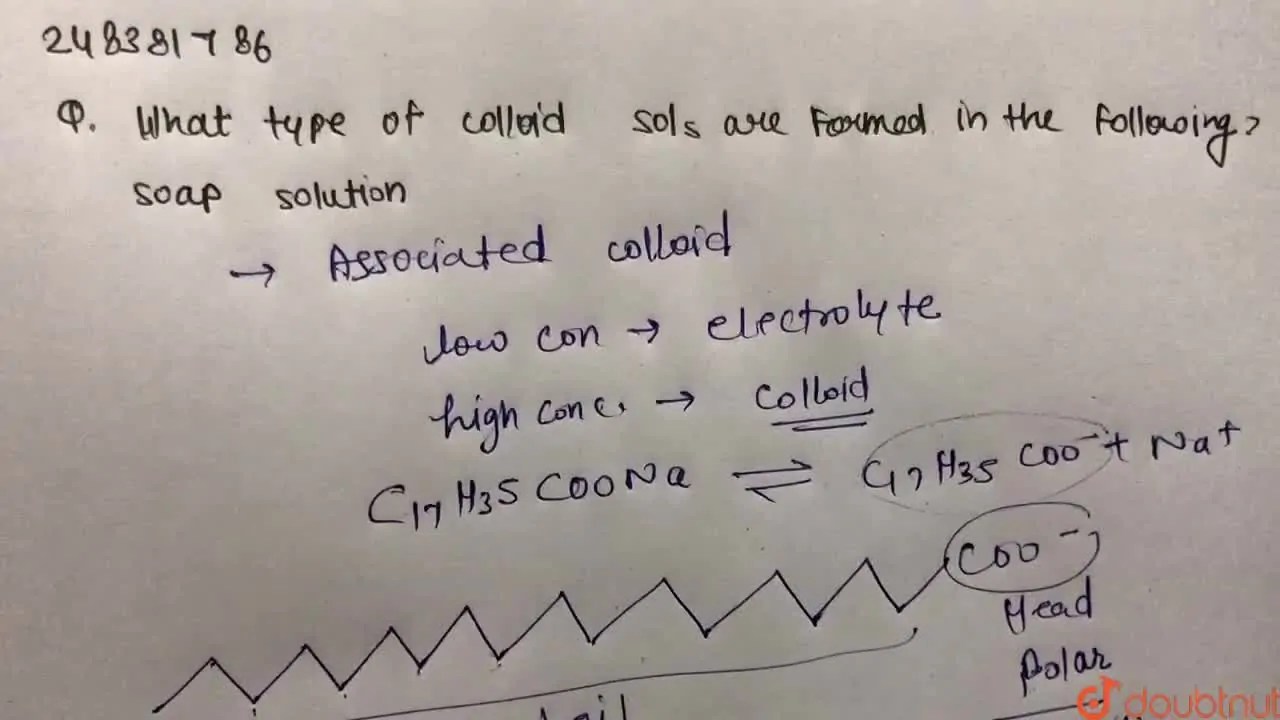 248381786
Q. What type of colloid sols are formed in the following?
soap solution
→ Associated colloid
low con → electrolyte
high conc. → colloid
C17H35COONa ⇌ C17H35COO⁻ + Na+
COO⁻
Head
Polar
tail
doubtnut